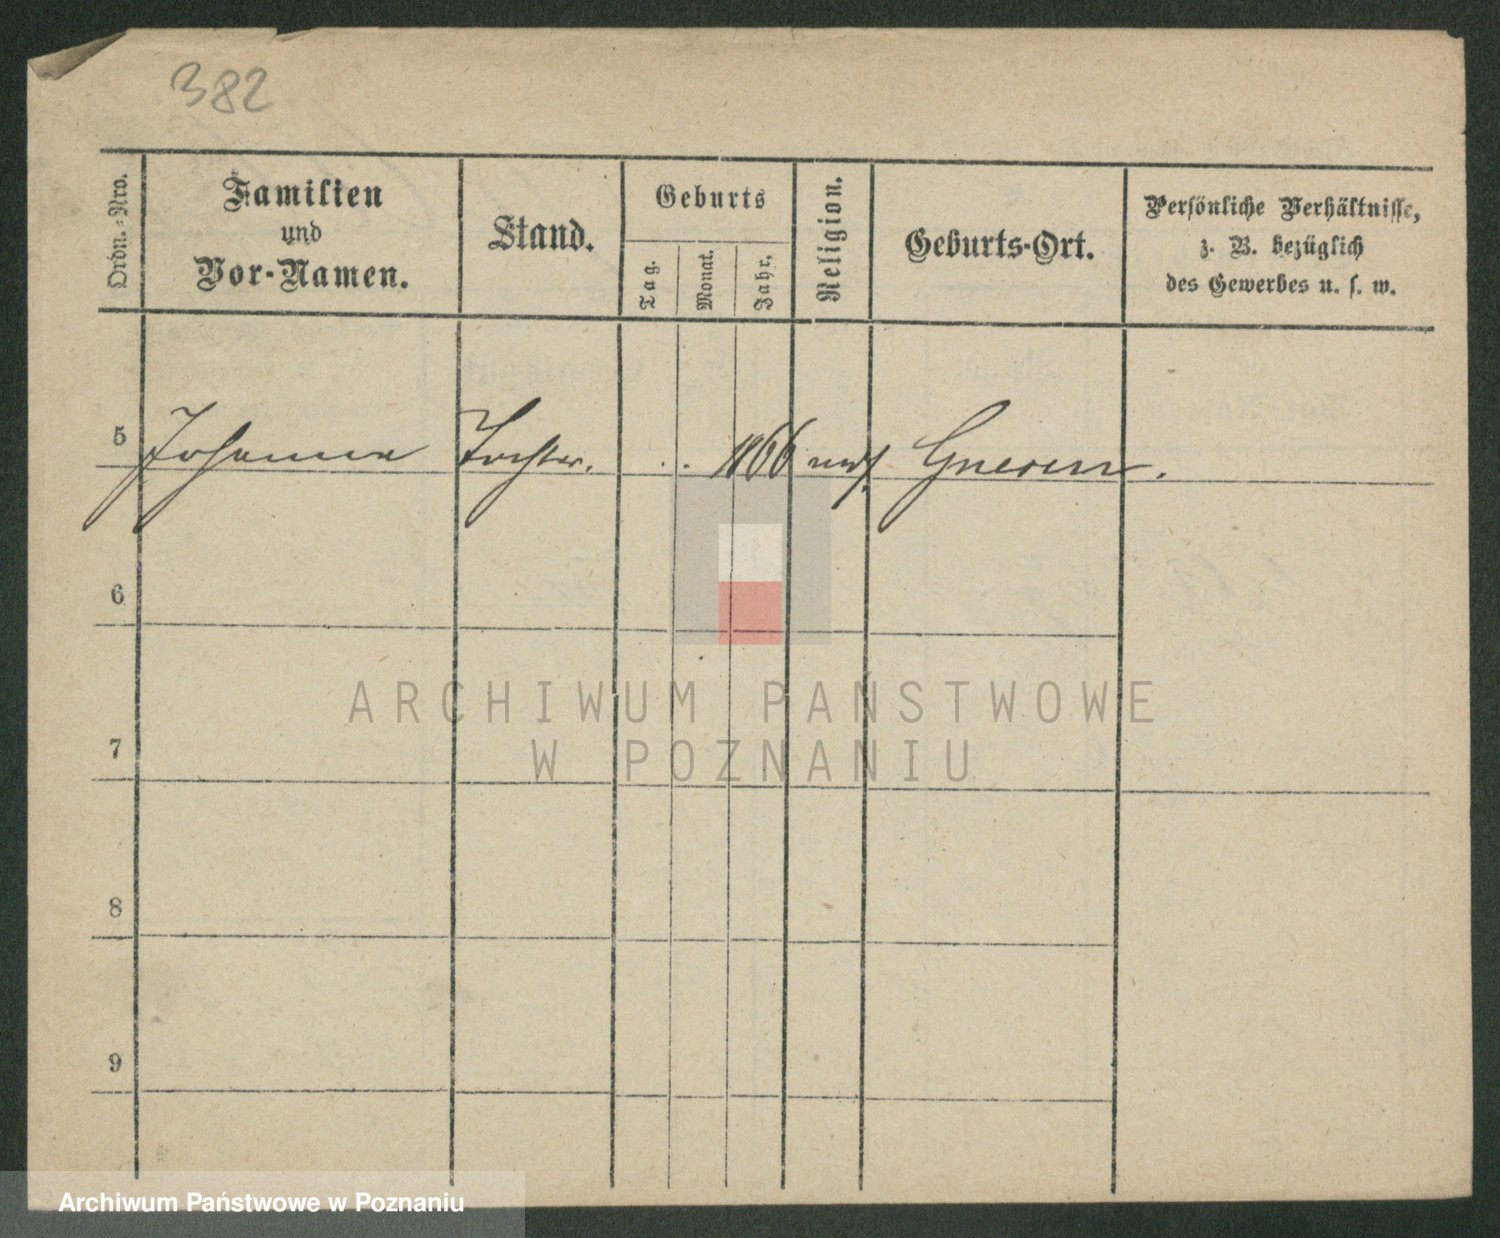 382
Ordn.-Nro.
Familien
und
Vor-Namen.
Stand.
Geburts
Tag.
Monat.
Jahr.
Religion.
Geburts-Ort.
Persönliche Verhältnisse,
z. B. bezüglich
des Gewerbes u. s. w.
5 Johanna Tochter. . . 1866 Gnesen.
6
7
8
9
ARCHIWUM PAŃSTWOWE
W POZNANIU
Archiwum Państwowe w Poznaniu